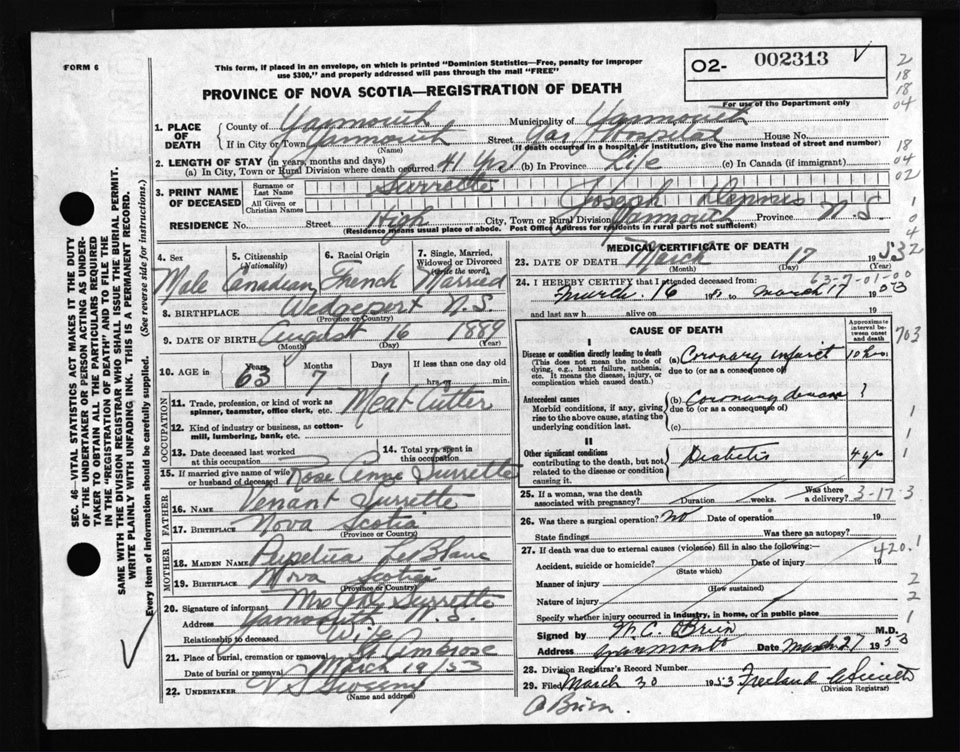 FORM 6
This form, if placed in an envelope, on which is printed "Dominion Statistics—Free, penalty for improper
use $300," and properly addressed will pass through the mail "FREE"
O2- 002313
For use of the Department only
PROVINCE OF NOVA SCOTIA—REGISTRATION OF DEATH
2
18
18
04
18
04
02
1
0
4
1. PLACE OF DEATH
County of Yarmouth Municipality of Yarmouth
If in City or Town Yarmouth Street Yar Hospital House No.
(Name) (If death occurred in a hospital or institution, give the name instead of street and number)
2. LENGTH OF STAY (in years, months and days)
(a) In City, Town or Rural Division where death occurred 41 Yrs (b) In Province Life (c) In Canada (if immigrant)
3. PRINT NAME OF DECEASED
Surname or Last Name Surrette
All Given or Christian Names Joseph Dennis
RESIDENCE No. Street High City, Town or Rural Division Yarmouth Province N.S.
(Residence means usual place of abode. Post Office Address for residents in rural parts not sufficient)
SEC. 46—VITAL STATISTICS ACT MAKES IT THE DUTY
OF THE UNDERTAKER OR PERSON ACTING AS UNDER-
TAKER TO OBTAIN ALL THE PARTICULARS REQUIRED
IN THE "REGISTRATION OF DEATH" AND TO FILE THE
SAME WITH THE DIVISION REGISTRAR WHO SHALL ISSUE THE BURIAL PERMIT.
WRITE PLAINLY WITH UNFADING INK. THIS IS A PERMANENT RECORD.
Every item of information should be carefully supplied. (See reverse side for instructions.)
4. Sex
Male
5. Citizenship
(Nationality)
Canadian
6. Racial Origin
French
7. Single, Married,
Widowed or Divorced
(write the word)
Married
8. BIRTHPLACE Wedgeport N.S.
(Province or Country)
9. DATE OF BIRTH August 16 1889
(Month) (Day) (Year)
10. AGE in Years Months Days If less than one day old
63 7 1 hrs. or min.
OCCUPATION
11. Trade, profession, or kind of work as
spinner, teamster, office clerk, etc. Meat Cutter
12. Kind of industry or business, as cotton-
mill, lumbering, bank, etc.
13. Date deceased last worked
at this occupation
14. Total yrs. spent in
this occupation
15. If married give name of wife
or husband of deceased Rose Anne Surrette
FATHER
16. Name Venant Surrette
17. Birthplace Nova Scotia
(Province or Country)
MOTHER
18. Maiden Name LeBlanc
19. Birthplace Nova Scotia
(Province or Country)
20. Signature of informant Mrs Surrette
Address Yarmouth, N.S.
Relationship to deceased Wife
21. Place of burial, cremation or removal St Ambrose
Date of burial or removal March 19/53
22. UNDERTAKER V S Sweeny
(Name and address)
MEDICAL CERTIFICATE OF DEATH
23. DATE OF DEATH March 17 1953 2
(Month) (Day) (Year)
63-7-01-00
24. I HEREBY CERTIFY that I attended deceased from:
March 16 19 to March 17 1953
and last saw h alive on 19
CAUSE OF DEATH
Approximate
interval be-
tween onset
and death
703
I
Disease or condition directly leading to death
(This does not mean the mode of
dying, e.g., heart failure, asthenia,
etc. It means the disease, injury, or
complication which caused death.)
(a) Coronary infarct 10 hrs.
due to (or as a consequence of)
Antecedent causes
Morbid conditions, if any, giving
rise to the above cause, stating the
underlying condition last.
(b) Coronary disease ?
due to (or as a consequence of)
(c)
1
II
Other significant conditions
contributing to the death, but not
related to the disease or condition
causing it.
Diabetis 4 yrs
1
25. If a woman, was the death
associated with pregnancy? Duration weeks. Was there a delivery?
3-17-3
26. Was there a surgical operation? no Date of operation 19
State findings Was there an autopsy?
27. If death was due to external causes (violence) fill in also the following:—
420.1
Accident, suicide or homicide? Date of injury 19
(State which)
Manner of injury
(How sustained)
2
Nature of injury
2
Specify whether injury occurred in industry, in home, or in public place
1
Signed by M.C. OBrien M.D.
Address Yarmouth Date March 27 1953
28. Division Registrar's Record Number
29. Filed March 30 1953
(Division Registrar)
OBrien.